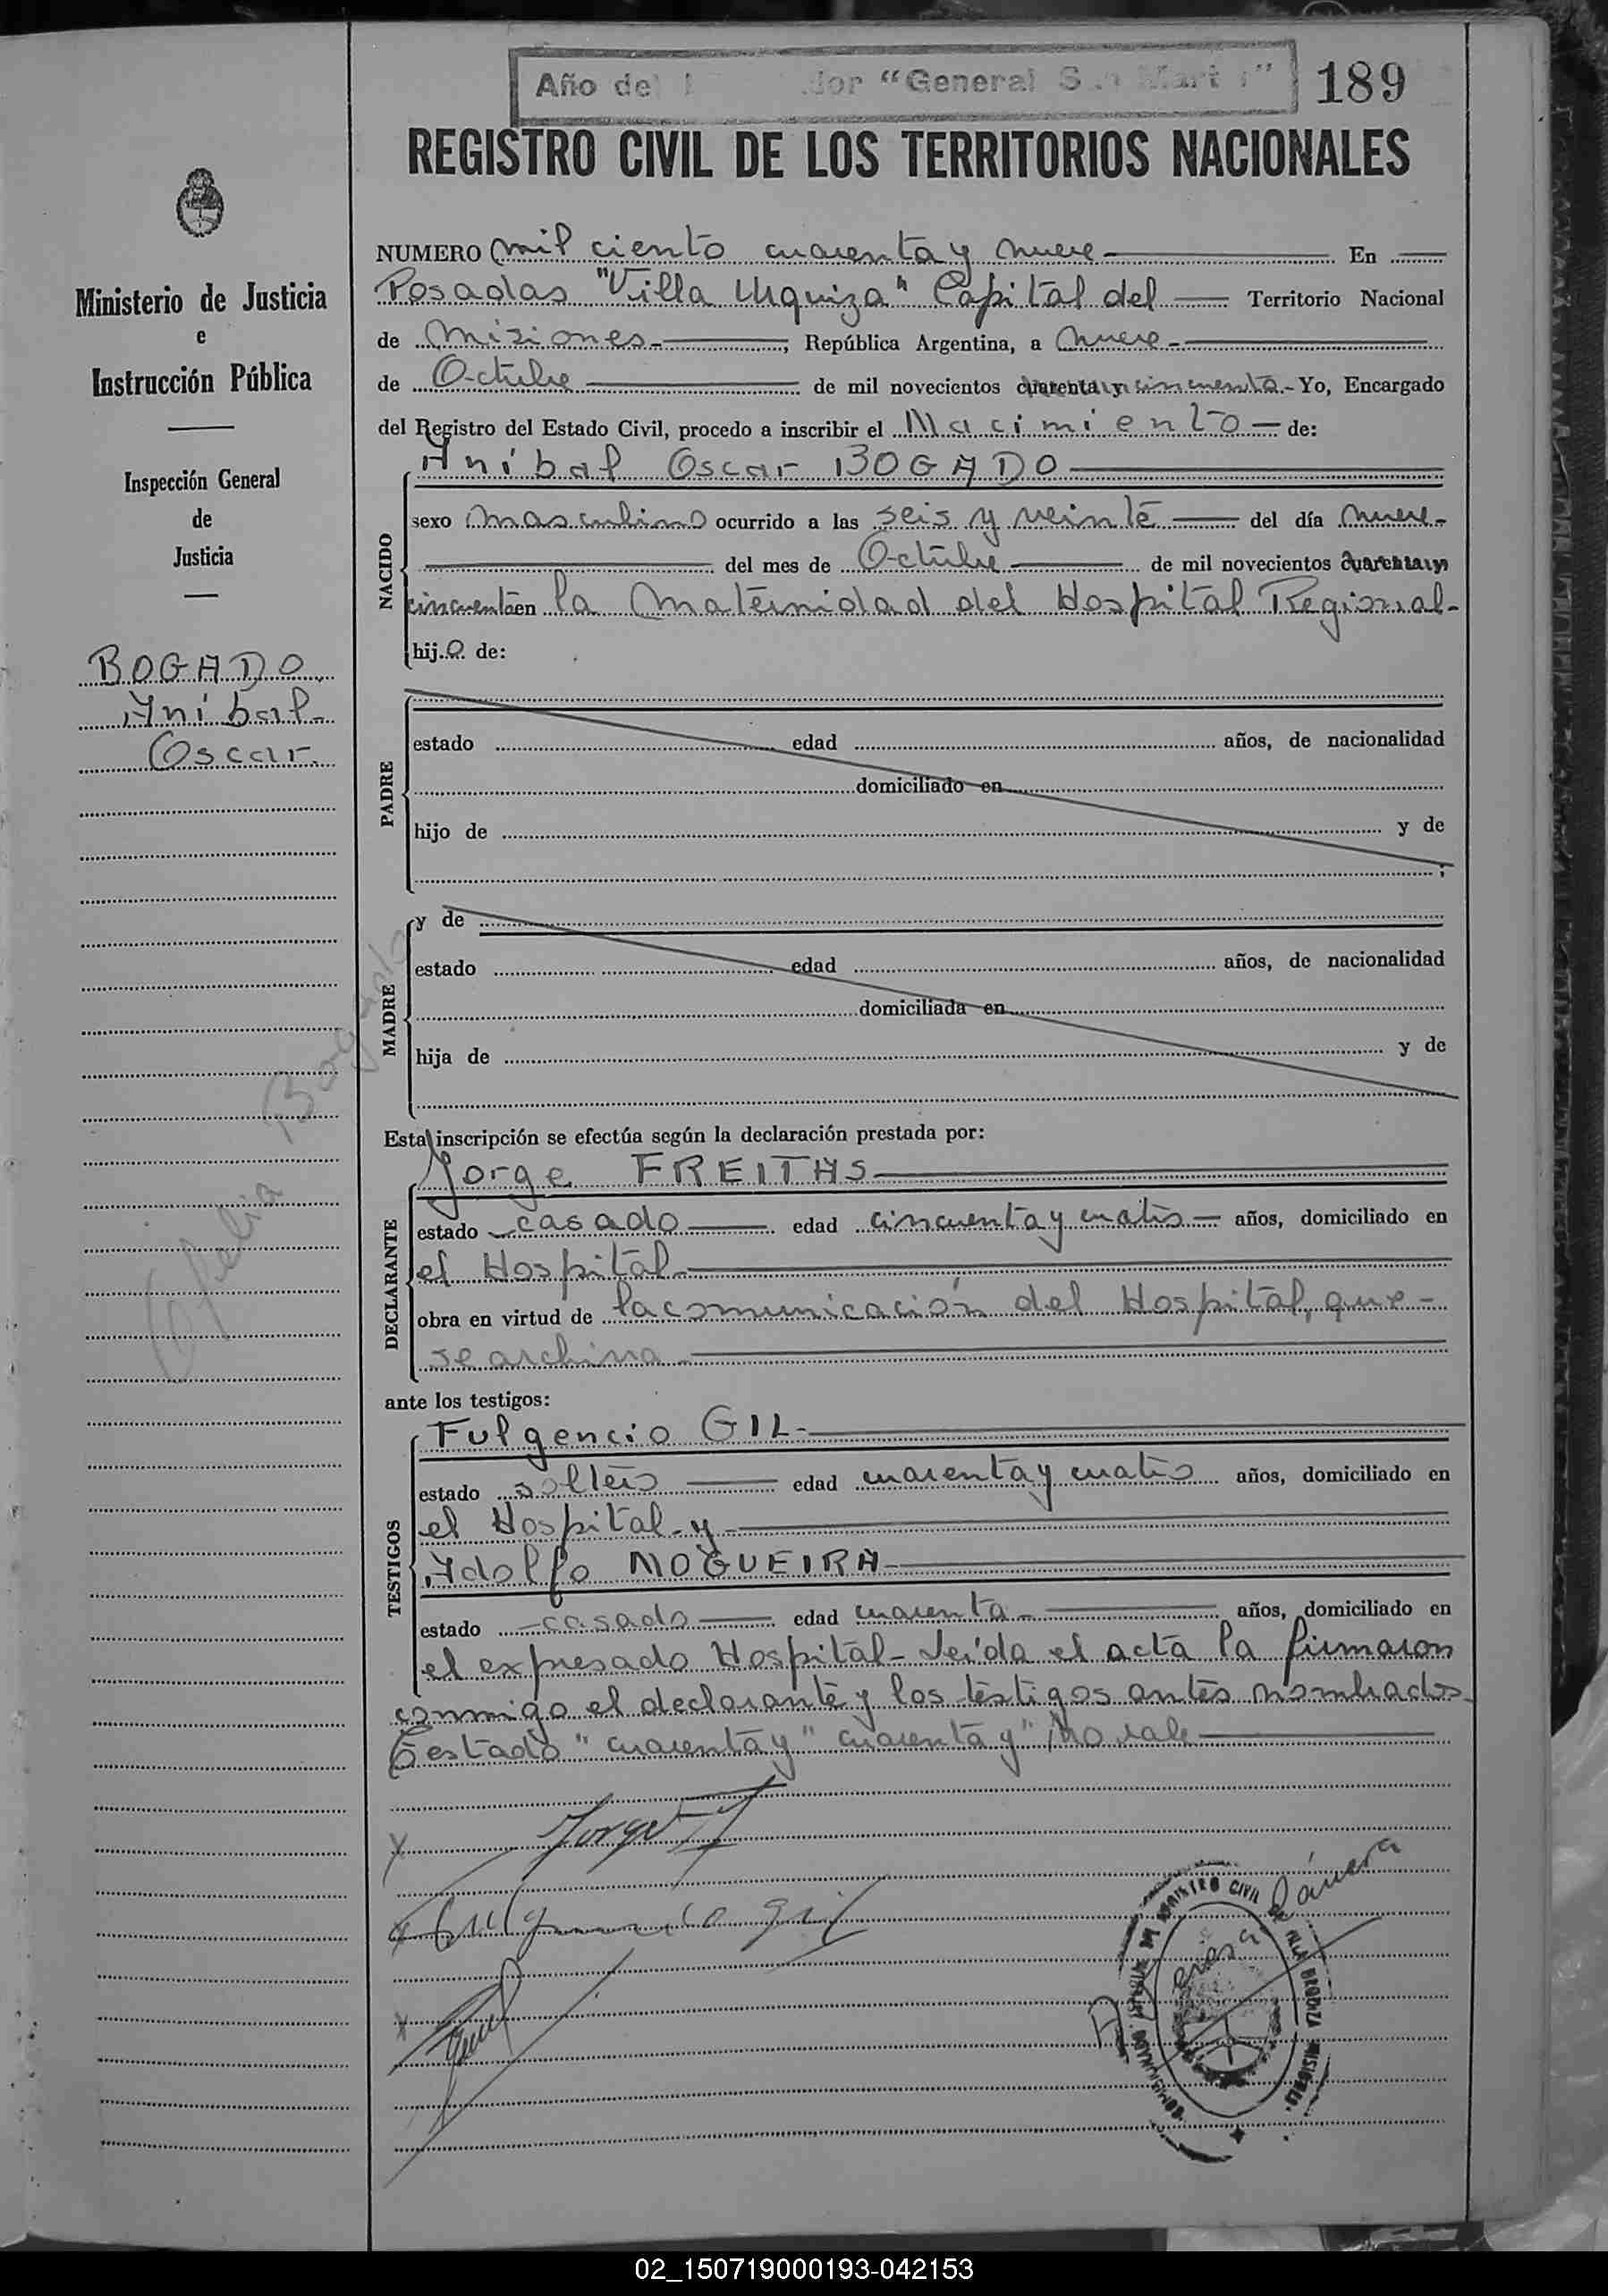 Año del dor "General San Martín"
189
REGISTRO CIVIL DE LOS TERRITORIOS NACIONALES
Ministerio de Justicia
e
Instrucción Pública
Inspección General
de
Justicia
BOGADO
Aníbal
Oscar.
Ofelia Bogado
NUMERO mil ciento cuarenta y nueve En
Posadas "Villa Urquiza" Capital del Territorio Nacional
de Misiones.- ; República Argentina, a nueve-
de Octubre de mil novecientos cuarenta y cincuenta.- Yo, Encargado
del Registro del Estado Civil, procedo a inscribir el Nacimiento de:
Aníbal Oscar BOGADO
NACIDO
sexo masculino ocurrido a las seis y veinte del día nueve-
del mes de Octubre de mil novecientos cuarenta y
cincuenta en la Maternidad del Hospital Regional-
hijo de:
PADRE
estado edad años, de nacionalidad
domiciliado en
hijo de y de
;
MADRE
y de
estado edad años, de nacionalidad
domiciliada en
hija de y de
Esta inscripción se efectúa según la declaración prestada por:
DECLARANTE
Jorge FREITAS
estado casado edad cincuenta y cuatro años, domiciliado en
el Hospital
obra en virtud de la comunicación del Hospital, que-
se archiva
ante los testigos:
TESTIGOS
Fulgencio GIL-
estado soltero edad cuarenta y cuatro años, domiciliado en
el Hospital-y
Adolfo NOGUEIRA
estado casado edad cuarenta- años, domiciliado en
el expresado Hospital- Leída el acta la firmaron
conmigo el declarante y los testigos antes nombrados
Testado "cuarenta y" cuarenta y" No vale
x Jorge F
x Fulgencio gil
x
REGISTRO CIVIL
MISIONES
02_150719000193-042153